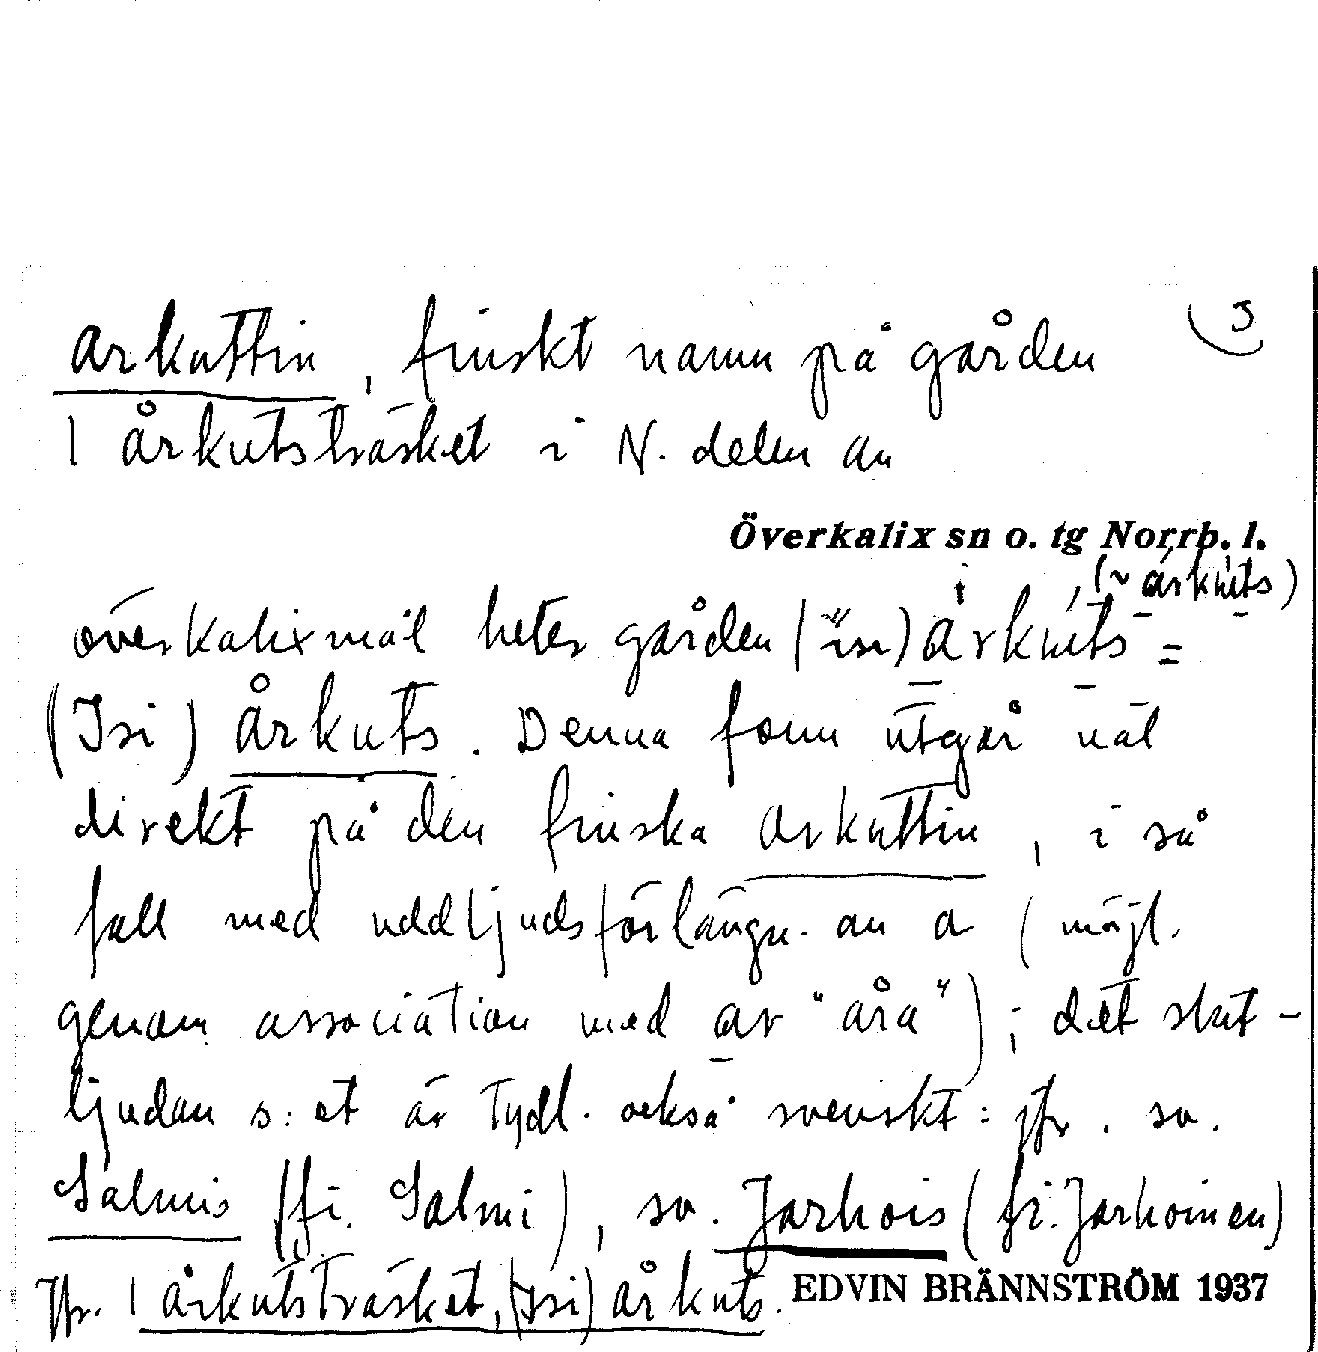 arkuttin, finskt namn på gården 3
1 årkutsträsket i N. delen av
Överkalix sn o. tg Norrb. l.
, (~ årkuts)
överkalixmål heter gården (isi) arkuts =
(Isi) årkuts. Denna form utgår väl
direkt på den finska arkuttin, i så
fall med uddljudsförlängn. av a (möjl.
genom association med ar "åra"); det slut-
ljudan s: et är tydl. också svenskt: jfr. sv.
Salmis (fi. Salmi), sv. Jarhois (fi. Jarhoinen)
Jfr. 1 årkutsträsket, (Isi) årkuts. EDVIN BRÄNNSTRÖM 1937